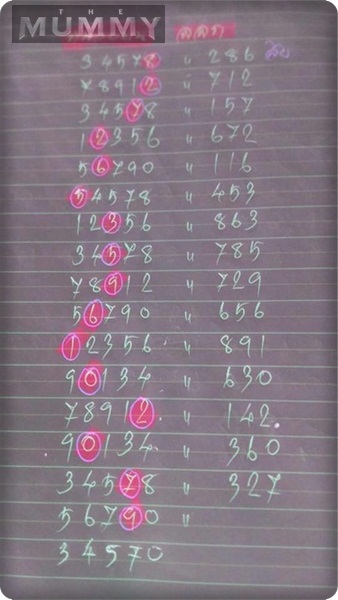 THE
MUMMY
ออก
34578 " 286
78912 " 712
34578 " 157
12356 " 672
56790 " 116
54578 " 453
12356 " 863
34578 " 785
78912 " 729
56790 " 656
12356 " 891
90134 " 630
78912 " 142
90134 " 360
34578 " 327
56790 "
34570